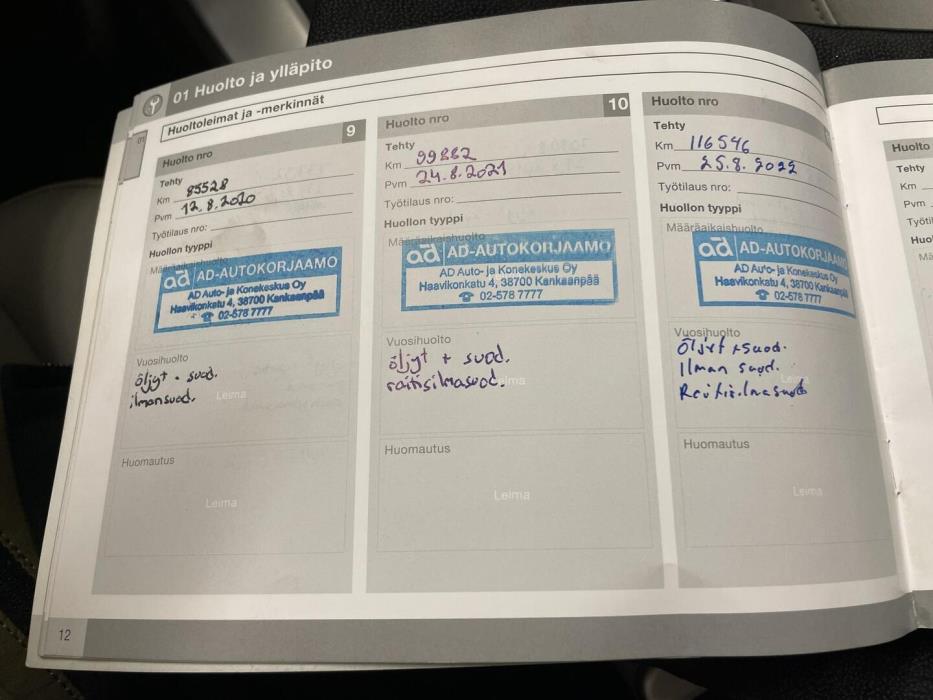 01 Huolto ja ylläpito
Huoltoleimat ja -merkinnät
01
Huolto nro 9
Tehty
Km 85528
Pvm 12.8.2020
Työtilaus nro:
Huollon tyyppi
Määräaikaishuolto
ad AD-AUTOKORJAAMO
AD Auto- ja Konekeskus Oy
Haavikonkatu 4, 38700 Kankaanpää
☎ 02-578 7777
Vuosihuolto
öljyt + suod.
ilmansuod.
Leima
Huomautus
Leima
Huolto nro 10
Tehty
Km 99882
Pvm 24.8.2021
Työtilaus nro:
Huollon tyyppi
Määräaikaishuolto
ad AD-AUTOKORJAAMO
AD Auto- ja Konekeskus Oy
Haavikonkatu 4, 38700 Kankaanpää
☎ 02-578 7777
Vuosihuolto
öljyt + suod.
raitisilmasuod.
Leima
Huomautus
Leima
Huolto nro
Tehty
Km 116546
Pvm 25.8.2022
Työtilaus nro:
Huollon tyyppi
Määräaikaishuolto
ad AD-AUTOKORJAAMO
AD Auto- ja Konekeskus Oy
Haavikonkatu 4, 38700 Kankaanpää
☎ 02-578 7777
Vuosihuolto
Öljyt + suod.
Ilman suod.
Leima
Huomautus
Leima
Huolto
Tehty
Km
Pvm
12